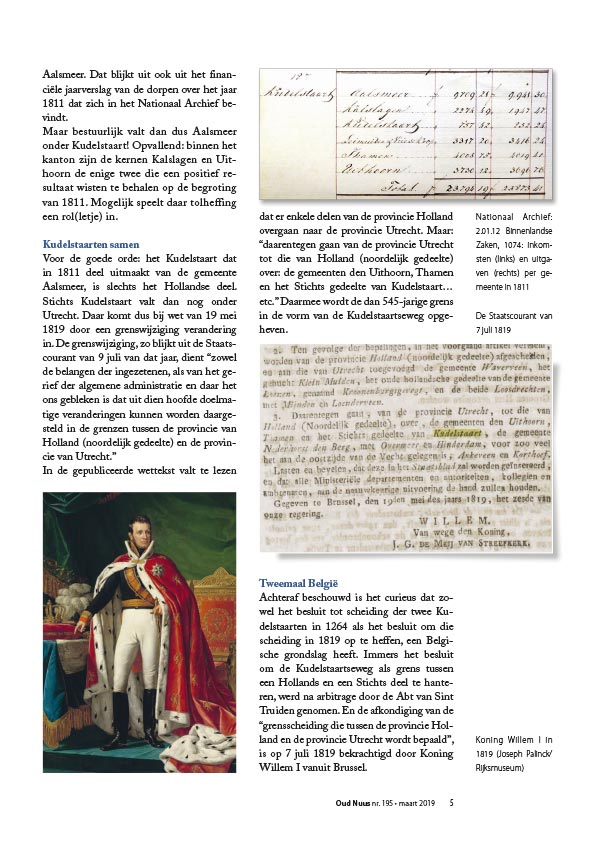 Aalsmeer. Dat blijkt uit ook uit het finan-
ciële jaarverslag van de dorpen over het jaar
1811 dat zich in het Nationaal Archief be-
vindt.
Maar bestuurlijk valt dan dus Aalsmeer
onder Kudelstaart! Opvallend: binnen het
kanton zijn de kernen Kalslagen en Uit-
hoorn de enige twee die een positief re-
sultaat wisten te behalen op de begroting
van 1811. Mogelijk speelt daar tolheffing
een rol(letje) in.
Kudelstaarten samen
Voor de goede orde: het Kudelstaart dat
in 1811 deel uitmaakt van de gemeente
Aalsmeer, is slechts het Hollandse deel.
Stichts Kudelstaart valt dan nog onder
Utrecht. Daar komt dus bij wet van 19 mei
1819 door een grenswijziging verandering
in. De grenswijziging, zo blijkt uit de Staats-
courant van 9 juli van dat jaar, dient “zowel
de belangen der ingezetenen, als van het ge-
rief der algemene administratie en daar het
ons gebleken is dat uit dien hoofde doelma-
tige veranderingen kunnen worden daarge-
steld in de grenzen tussen de provincie van
Holland (noordelijk gedeelte) en de provin-
cie van Utrecht.”
In de gepubliceerde wettekst valt te lezen
Kudelstaart
Aalsmeer
Kalslagen
Kudelstaart
Thamen
Uithoorn
Total
dat er enkele delen van de provincie Holland
overgaan naar de provincie Utrecht. Maar:
“daarentegen gaan van de provincie Utrecht
tot die van Holland (noordelijk gedeelte)
over: de gemeenten den Uithoorn, Thamen
en het Stichts gedeelte van Kudelstaart…
etc.” Daarmee wordt de dan 545-jarige grens
in de vorm van de Kudelstaartseweg opge-
heven.
Nationaal Archief:
2.01.12 Binnenlandse
Zaken, 1074: inkom-
sten (links) en uitga-
ven (rechts) per ge-
meente in 1811
De Staatscourant van
7 juli 1819
2. Ten gevolge der bepalingen, in het voorgaand artikel vermeld,
worden van de provincie Holland (noordelijk gedeelte) afgescheiden,
en aan die van Utrecht toegevoegd de gemeente Waverveen, het
gehucht Klein Muiden, het oude hollandsche gedeelte van de gemeente
Loenen, genaamd Kroonenburgsgeregt, en de beide Loosdrechten,
met Mijnden en Loenderveen.
3. Daarentegen gaan, van de provincie Utrecht, tot die van
Holland (Noordelijk gedeelte), over, de gemeenten den Uithoorn,
Thamen en het Stichts gedeelte van Kudelstaart, de gemeente
Nederhorst den Berg, met Overmeer en Hinderdam, voor zoo veel
het aan de oostzijde van de Vecht gelegen is; Ankeveen en Korthoef.
Lasten en bevelen, dat deze in het Staatsblad zal worden geïnsereerd,
en dat alle Ministeriële departementen en autoriteiten, kollegien en
ambtenaren, aan de naauwkeurige uitvoering de hand zullen houden.
Gegeven te Brussel, den 19den mei des jaars 1819, het zesde van
onze regering.
WILLEM.
Van wege den Koning,
J. G. DE MEIJ VAN STREEFKERK.
Tweemaal België
Achteraf beschouwd is het curieus dat zo-
wel het besluit tot scheiding der twee Ku-
delstaarten in 1264 als het besluit om die
scheiding in 1819 op te heffen, een Belgi-
sche grondslag heeft. Immers het besluit
om de Kudelstaartseweg als grens tussen
een Hollands en een Stichts deel te hante-
ren, werd na arbitrage door de Abt van Sint
Truiden genomen. En de afkondiging van de
“grensscheiding die tussen de provincie Hol-
land en de provincie Utrecht wordt bepaald”,
is op 7 juli 1819 bekrachtigd door Koning
Willem I vanuit Brussel.
Koning Willem I in
1819 (Joseph Palinck/
Rijksmuseum)
Oud Nuus nr. 195 • maart 2019 5